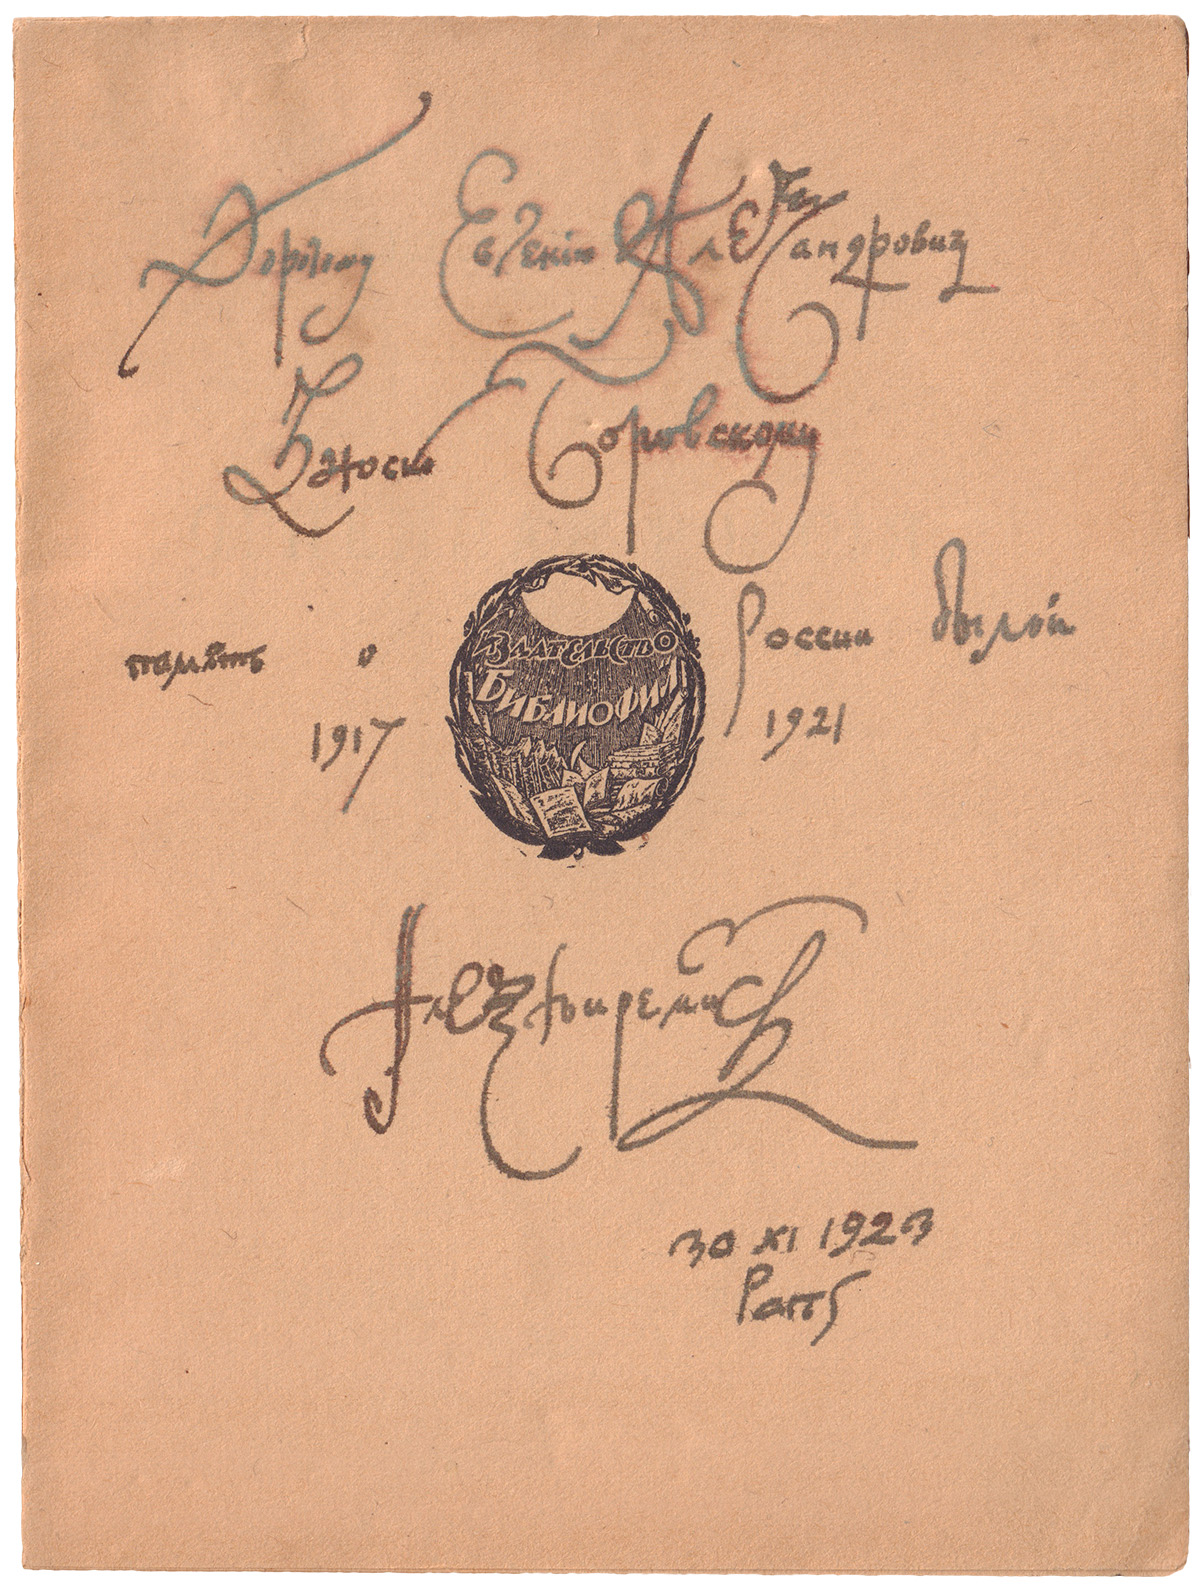 Дорогому Евгенію Александровичу
Зноско Боровскому
память о России былой
1917 1921
ИЗДАТЕЛЬСТВО
БИБЛИОФИЛ
Алексѣй Ремизов
30 XI 1923